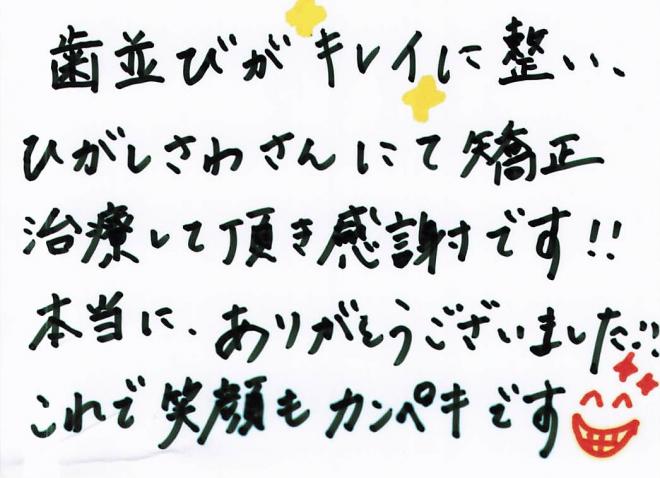 歯並びがキレイに整い、
ひがしさわさんにて矯正
治療して頂き感謝です!!
本当に、ありがとうございました!!
これで笑顔もカンペキです